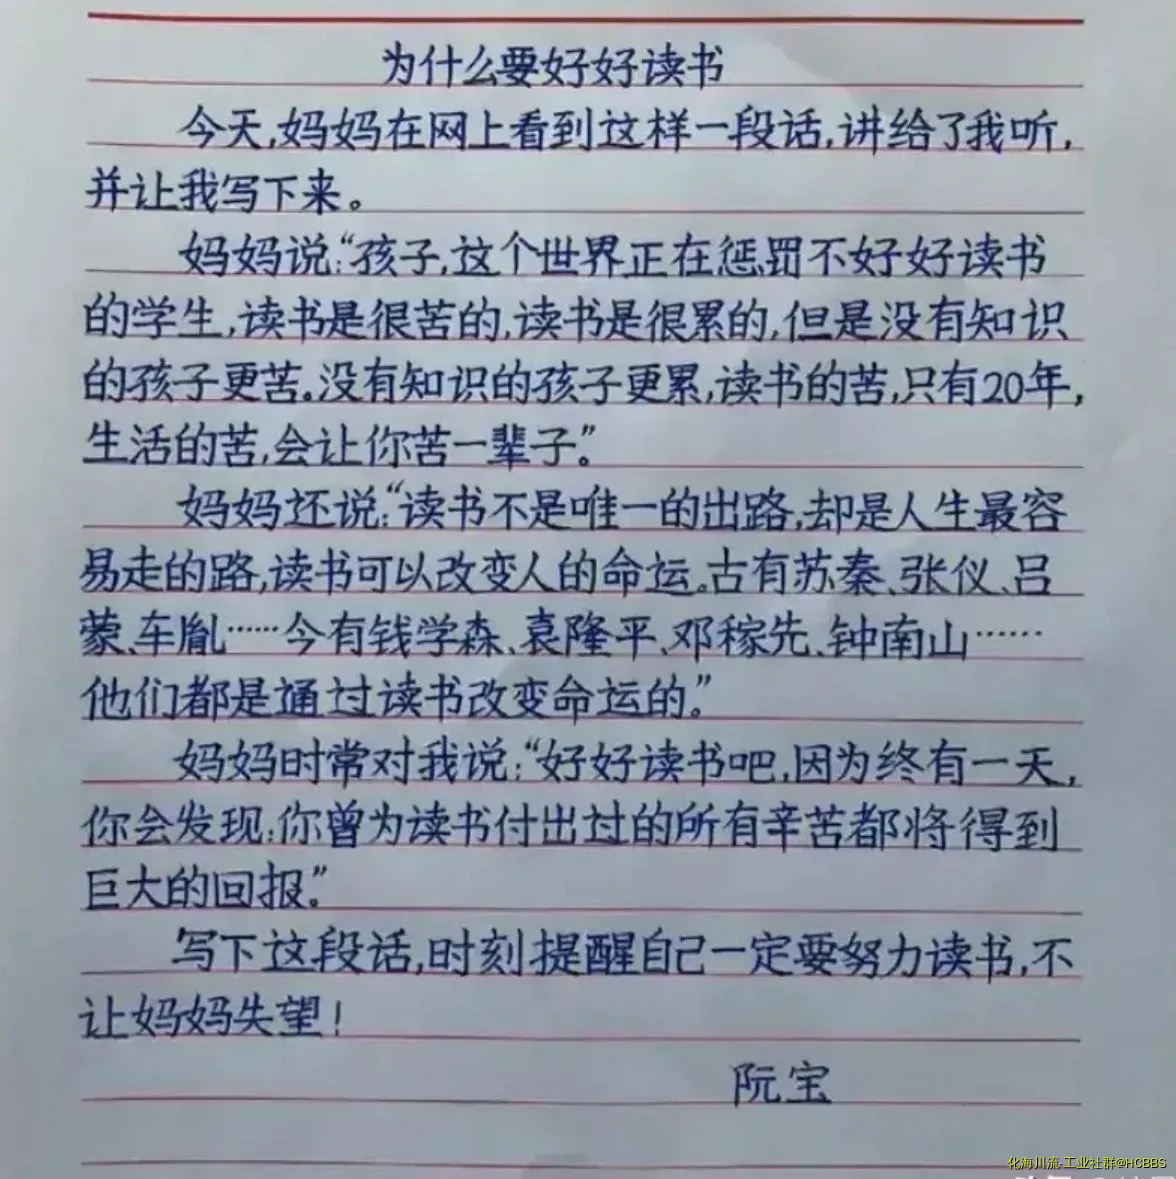 为什么要好好读书
今天,妈妈在网上看到这样一段话,讲给了我听,
并让我写下来。
妈妈说:“孩子,这个世界正在惩罚不好好读书
的学生,读书是很苦的,读书是很累的,但是没有知识
的孩子更苦。没有知识的孩子更累,读书的苦,只有20年,
生活的苦,会让你苦一辈子。”
妈妈还说:“读书不是唯一的出路,却是人生最容
易走的路,读书可以改变人的命运。古有苏秦、张仪、吕
蒙、车胤……今有钱学森、袁隆平、邓稼先、钟南山……
他们都是通过读书改变命运的。”
妈妈时常对我说:“好好读书吧,因为终有一天,
你会发现:你曾为读书付出过的所有辛苦都将得到
巨大的回报。”
写下这段话,时刻提醒自己一定要努力读书,不
让妈妈失望!
阮宝
化海川流-工业社群@HCBBS